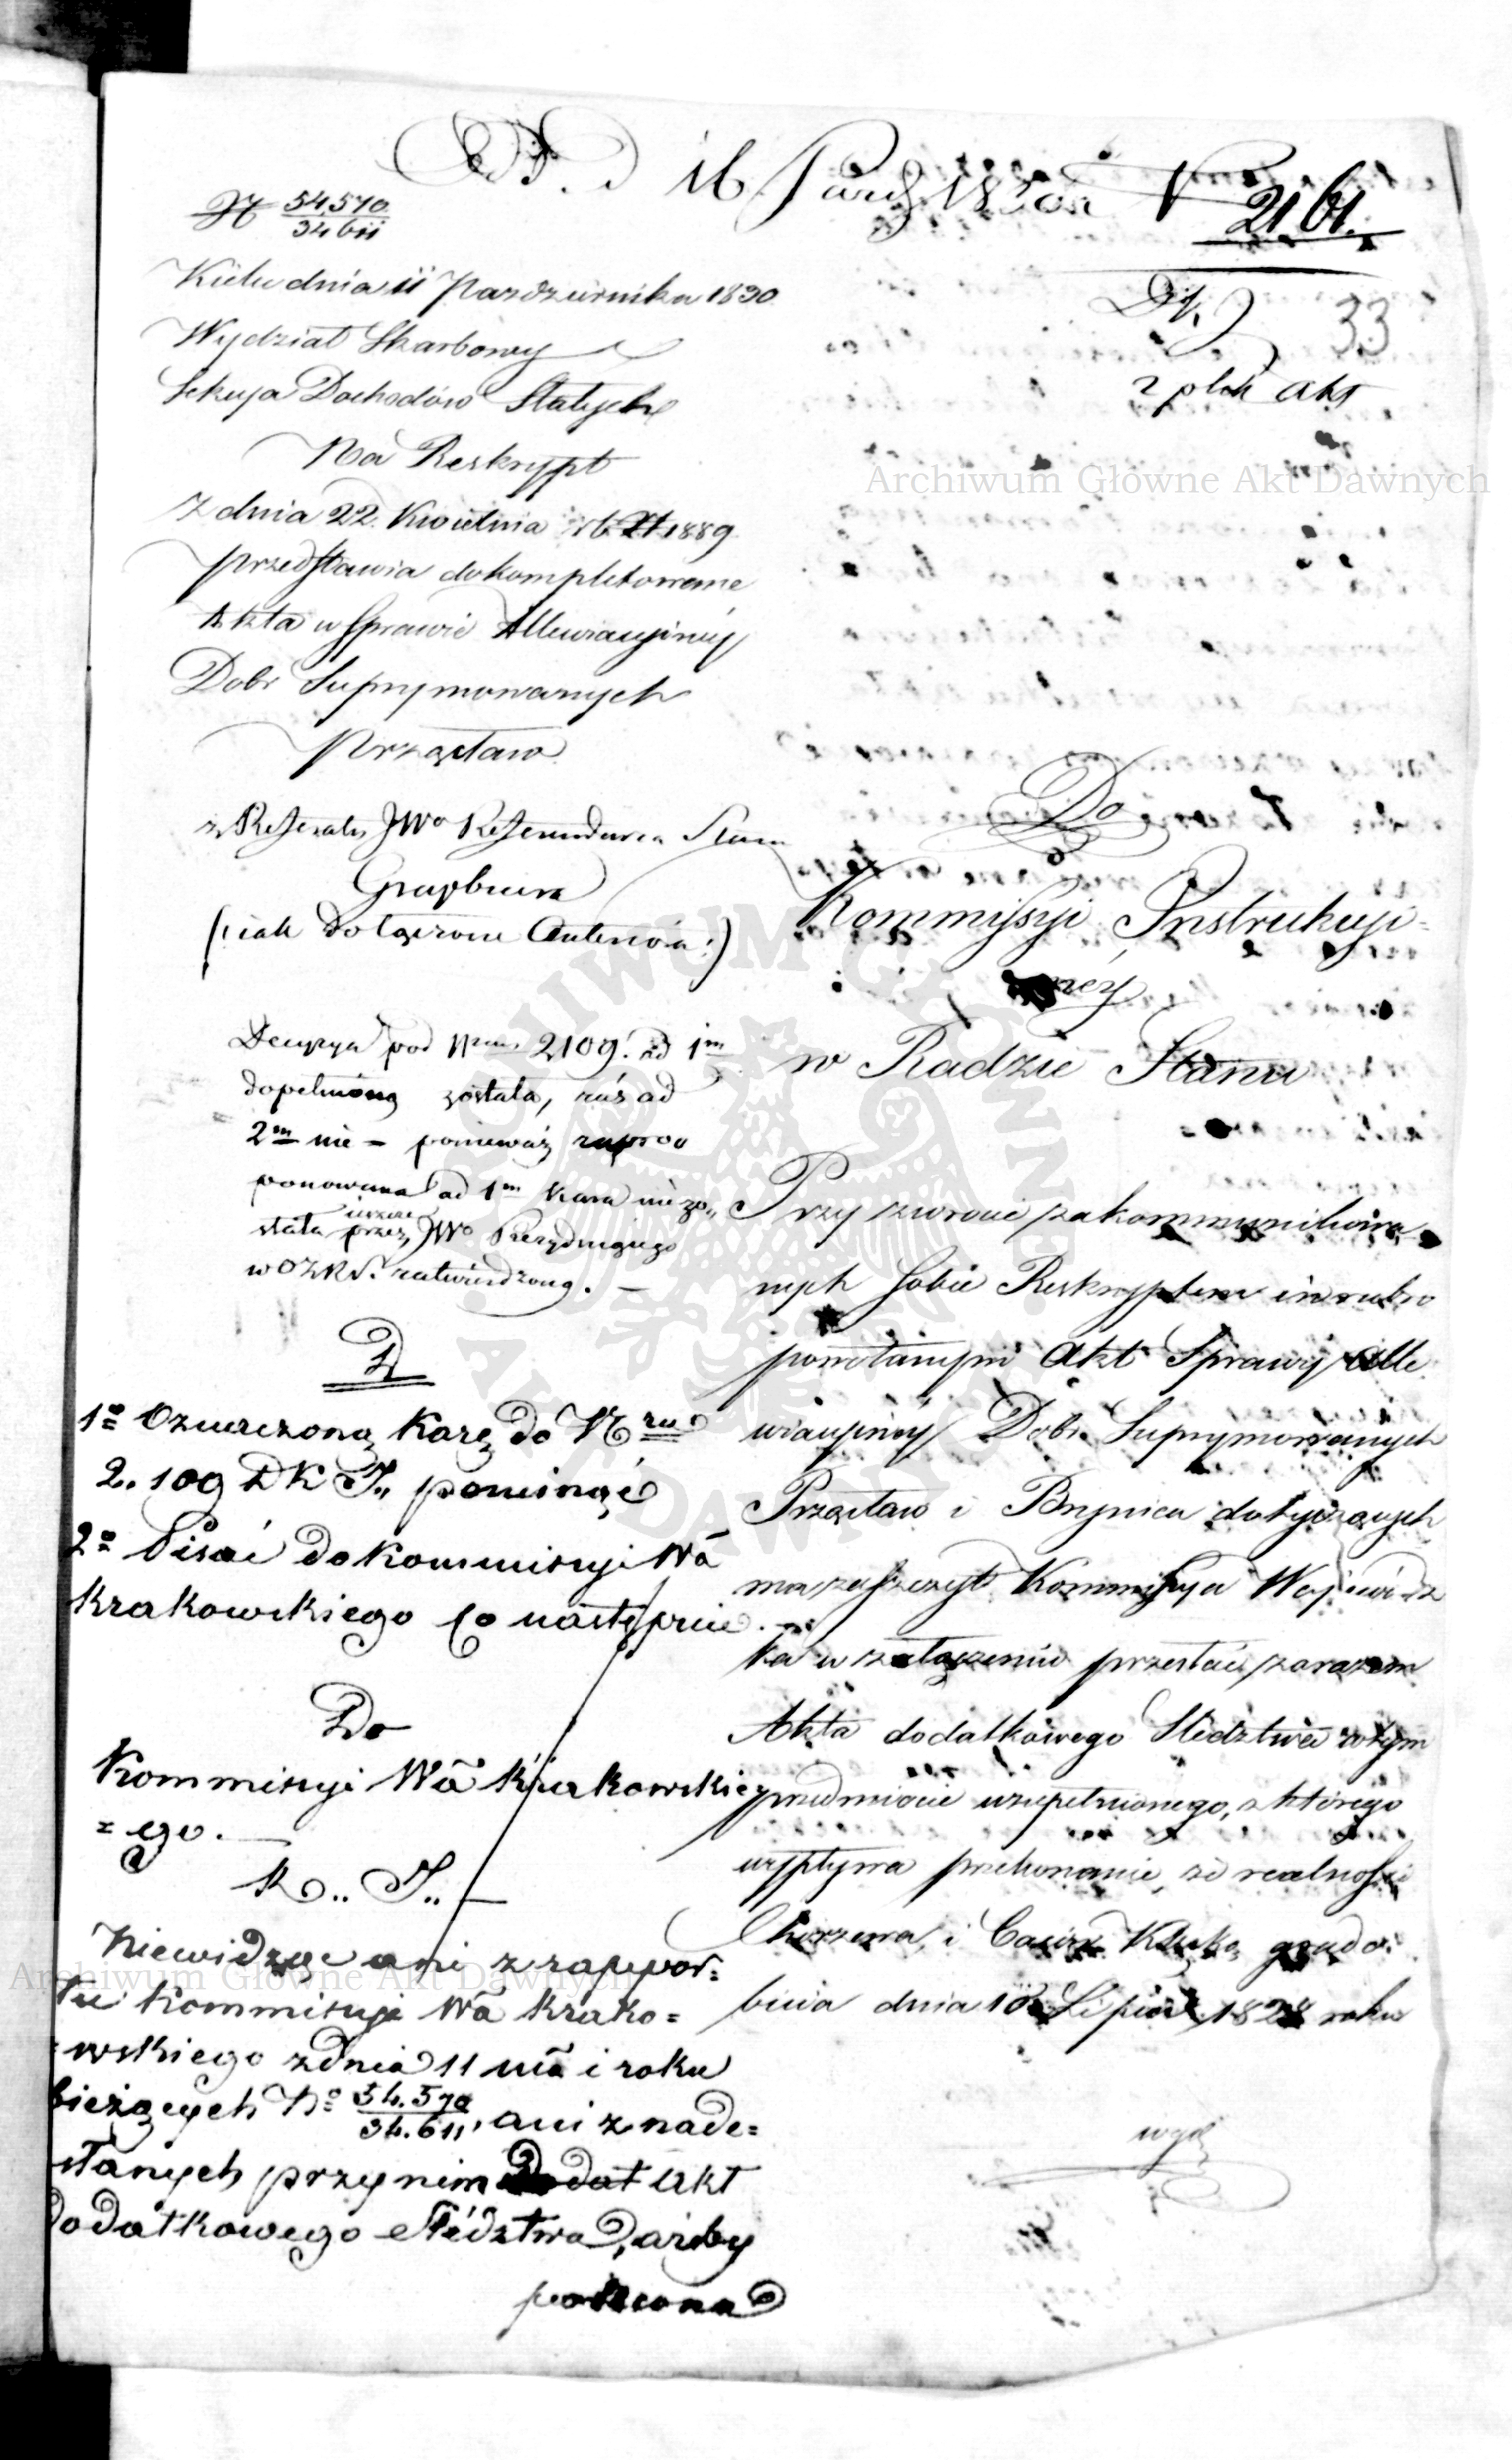 16 Paźd 1830 N 2161.
N 34570
34611
Kielce dnia 11 Pazdziernika 1830
33
Wydział Skarbowy
Sekcya Dochodów Stałych
Akt
Na Reskrypt
z dnia 22. Kwietnia 1889
przedstawia dokompletowane
Akta w Sprawie Allewiacyiney
Dobr Supprymowanych
Przęsław
z Referatu JWo Referendarza Stanu
Grayberta
(: iak dołączone :)
Decyzya pod Nrem 2109. ad 1m
dopełnioną została, zaś ad
2m nie – ponieważ zapro
ponowana ad 1m kara nie zo„
stała ieszcze przez JWo Prezyduiącego
zatwierdzoną. –
D
1o Oznaczoną karę do Nru
2.109 D K I„ pominąć
2o Pisać do Kommissyi Wa
Krakowskiego co następuie.
Do
Kommissyi Wa Krakowski
= ego.
K„ I„ —
Niewidząc ani z rappor=
tu Kommissyi Wa Krako=
=wskiego z dnia 11 ma i roku
bieżących No 34.570
34.611, ani z nade=
słanych przy nim Akt
dodatkowego Śledztwa, ażeby
Do
Kommissyi Instrukcyi=
néy
w Radzie Stanu
Przy zwrocie zakommuniko
nych Sobie Reskryptem in rubro
powołanym Akt Sprawy Alle
wiacyiney Dobr Supprymowanych
Przęsław i Brynica dotyczących
ma zaszczyt Kommissya Woiewódz
ka w załączeniu przesłać zarazem
Akta dodatkowego Śledztwa w tym
przedmiocie uzupełnionego, z którego
wypływa przekonanie, że realność
gradobicia dnia 10 Lipca 1828 roku